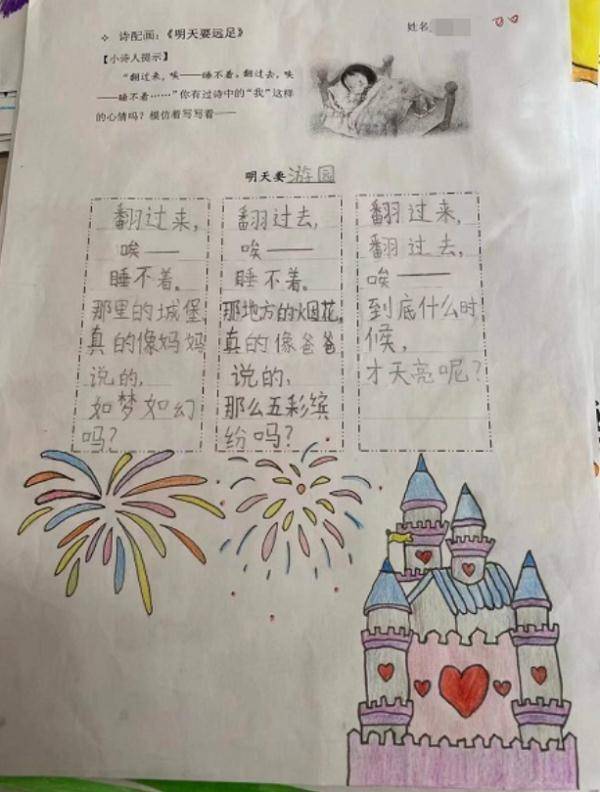 ❖ 诗配画:《明天要远足》
姓名
【小诗人提示】
“翻过来,唉——睡不着,翻过去,唉
——睡不着……”你有过诗中的“我”这样
的心情吗?模仿着写写看——
明天要游园
翻过来,
唉——
睡不着。
那里的城堡,
真的像妈妈
说的,
如梦如幻
吗?
翻过去,
唉——
睡不着。
那地方的烟花,
真的像爸爸
说的,
那么五彩缤
纷吗?
翻过来,
翻过去,
唉——
到底什么时
候,
才天亮呢?